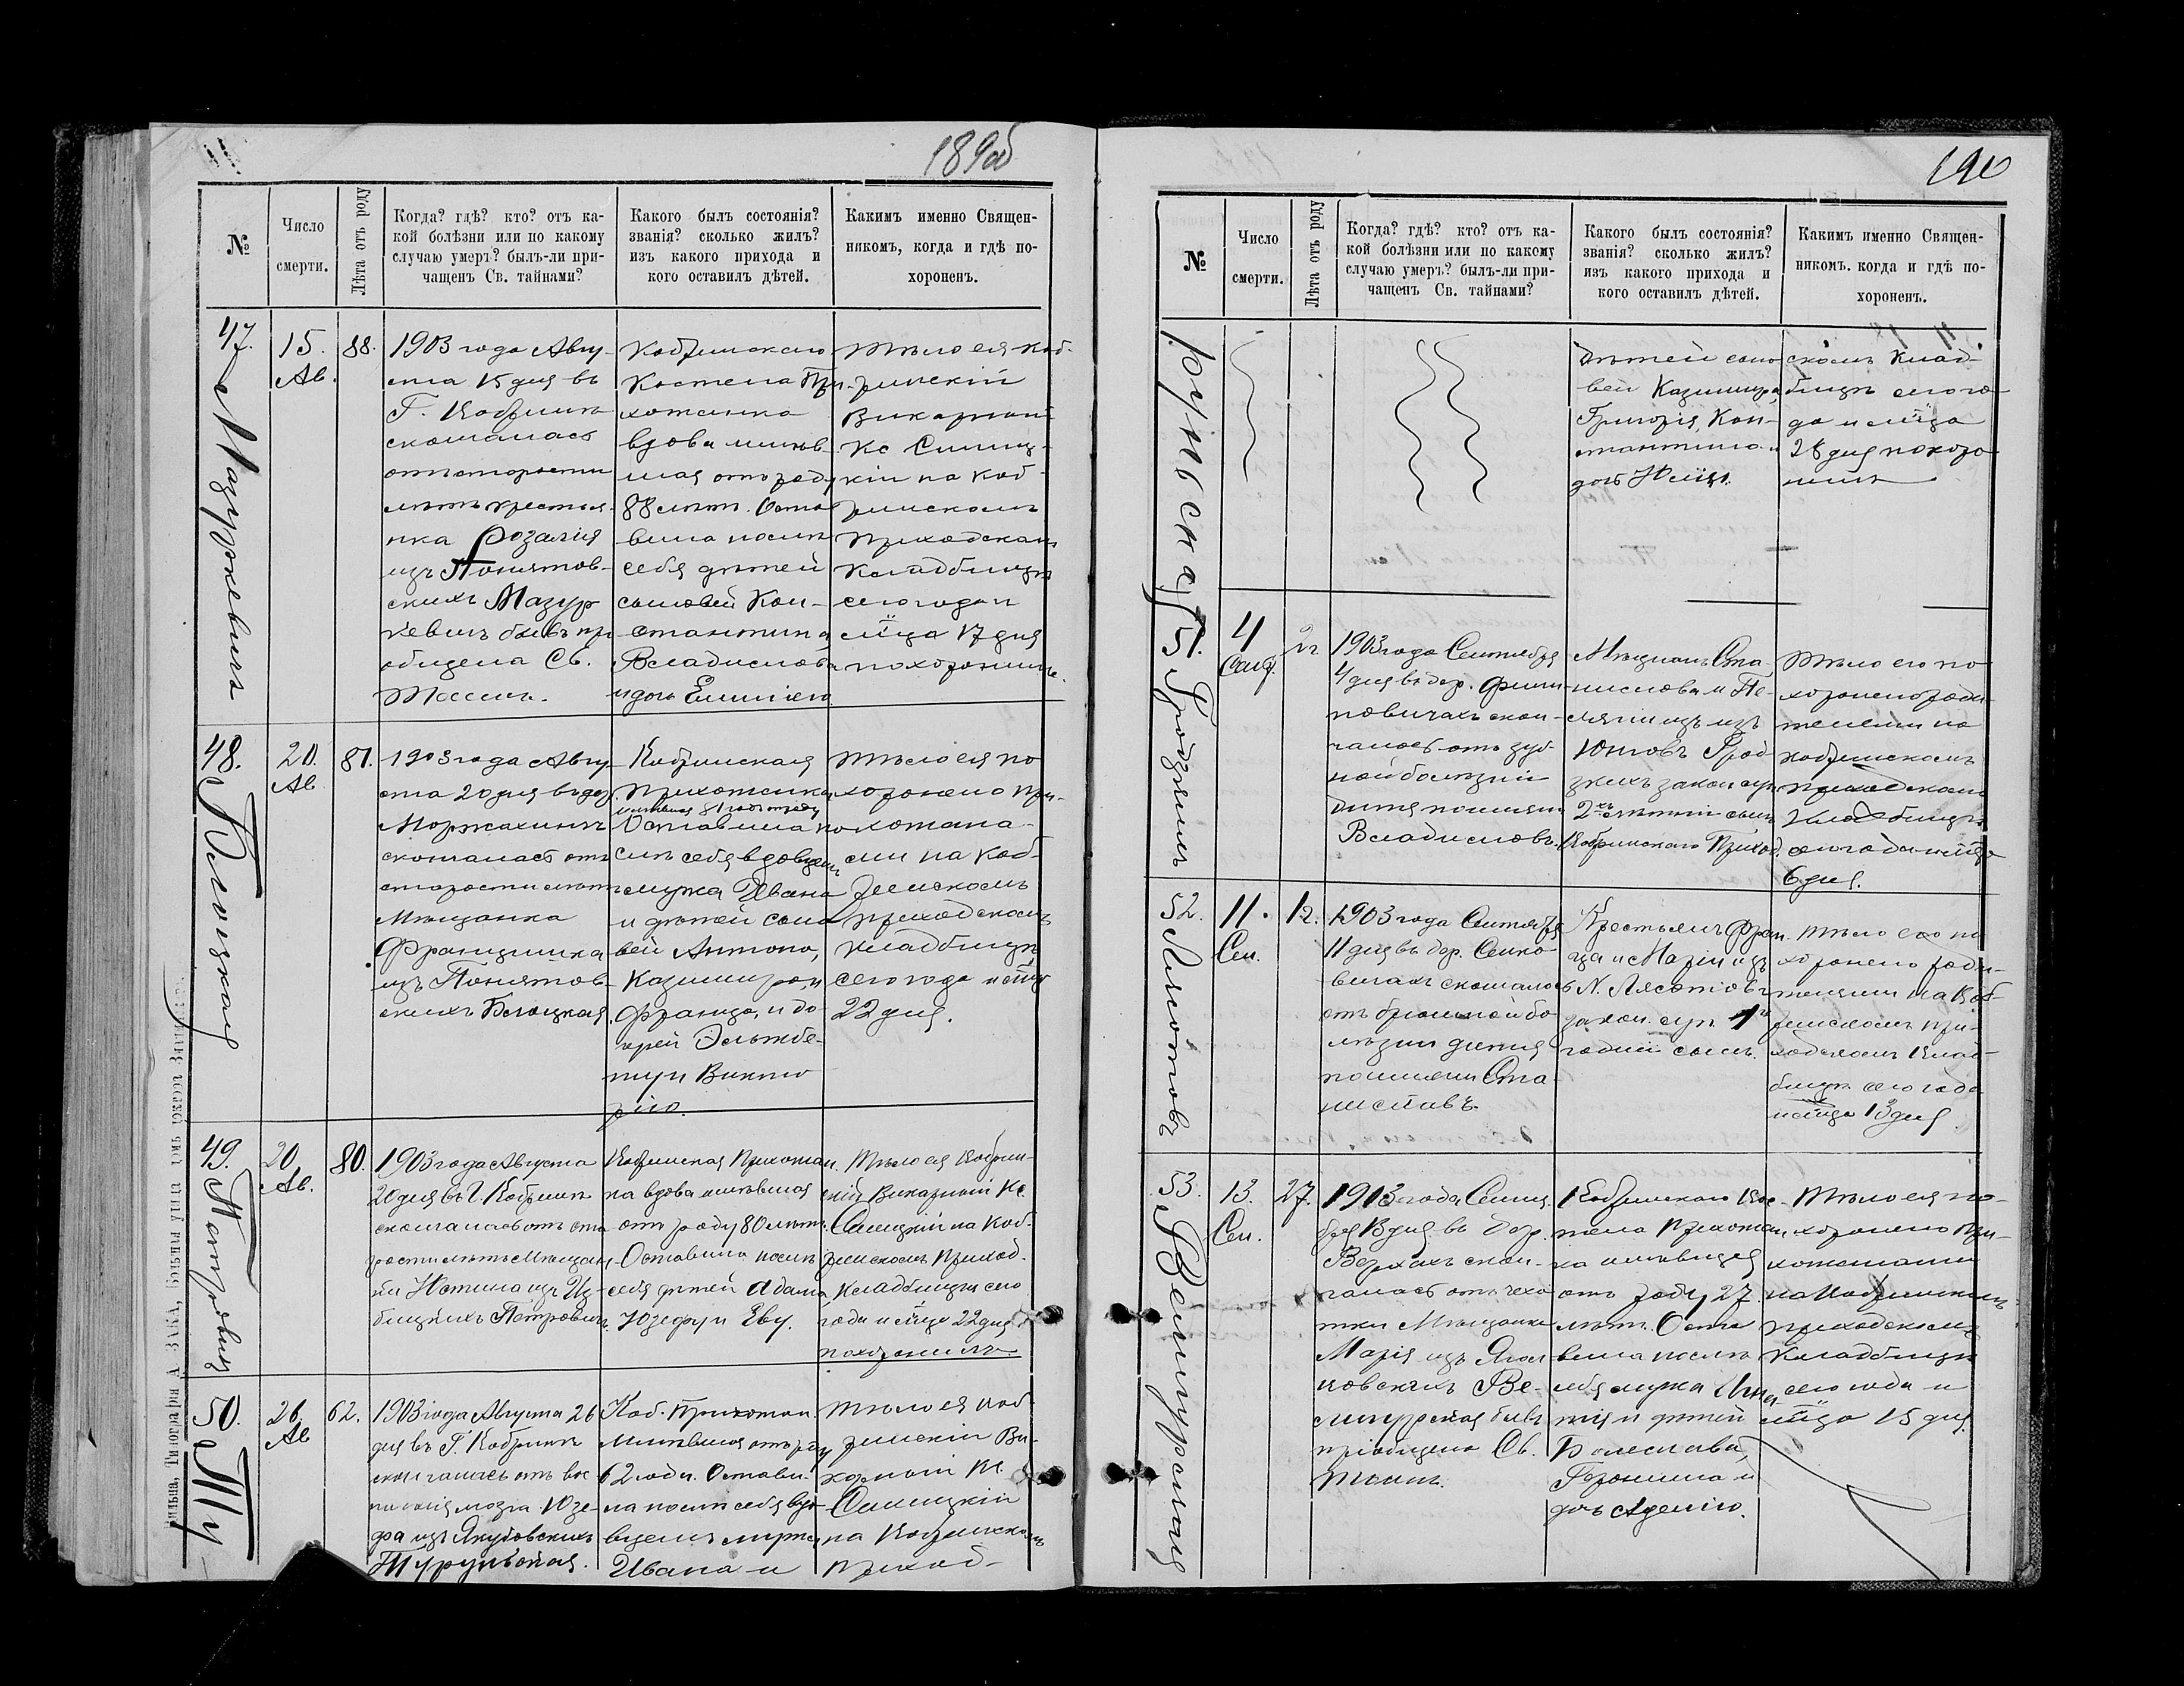 189об
№
Число смерти.
Лѣта отъ роду
Когда? гдѣ? кто? отъ ка-
кой болѣзни или по какому
случаю умеръ? былъ-ли при-
чащенъ Св. тайнами?
Какого былъ состоянія?
званія? сколько жилъ?
изъ какого прихода и
кого оставилъ дѣтей.
Какимъ именно Священ-
никомъ, когда и гдѣ по-
хороненъ.
47.
Мазуркевичъ
15.
Ав.
88.
1903 года Авгу-
ста 15 дня въ
Г. Кобринѣ
скончалась
отъ старости
лѣтъ крестья-
нка Розалія
изъ Понятов-
скихъ Мазур
кевичъ бывъ прі
общена Св.
Таинъ.
Кобринскаго
Костела При-
хожанка
вдова имѣв-
шая отъ роду
88 лѣтъ. Оста
вила послѣ
себя дѣтей
сыновей Кон-
стантина
Владислава
и дочь Емилію
Тѣло ея Коб-
ринскій
Викарный
Кс
кій на Коб-
ринскомъ
приходскомъ
кладбищѣ
сего года и
м̃ца 17 дня
похоронилъ.
48.
Бѣлоцкая
20.
Ав.
81.
1903 года Авгу-
ста 20 дня въ дер.
скончалась отъ
старости лѣтъ
Мѣщанка
Францишка
изъ Понятов-
скихъ Бѣлоцкая
Кобринская
Прихожанка
имѣвшая 81 годъ отъ роду
Оставила по
слѣ себя вдовцемъ
мужа Ивана
и дѣтей сыно
вей Антона,
Казимира, и
Франца, и до
черей Эльжбе-
ту и Викто
рію.
Тѣло ея по
хоронено при-
хожана-
ми на Коб-
ринскомъ
приходскомъ
кладбищѣ
сего года и м̃ца
22 дня.
49.
Петровичъ
20.
Ав.
80.
1903 года Августа
20 дня въ Г. Кобринѣ
скончалась отъ ста
рости лѣтъ Мѣщан-
ка Юстина изъ Из-
бицкихъ Петровичъ
Кобринская Прихожан.
ка вдова имѣвшая
отъ роду 80 лѣтъ.
Оставила послѣ
себя дѣтей Адама,
Юзефу и Еву.
Тѣло ея Кобрин-
скій Викарный Кс.
на Коб-
ринскомъ Приход.
Кладбищѣ сего
года и м̃ца 22 дня
похоронилъ.
50.
Ту
26.
Ав
62.
1903 года Августа 26
дня въ Г. Кобринѣ
скончалась отъ вос
паленія мозга Юзе-
фа изъ Якубовскихъ
Турульская.
Коб. Прихожан.
имѣвшая отъ роду
62 года. Остави-
ла послѣ себя вдо-
вцемъ мужа
Ивана и
Тѣло ея Коб-
ринскій Ви-
карный Кс.
на Кобринскомъ
приход-
190
№
Число смерти.
Лѣта отъ роду
Когда? гдѣ? кто? отъ ка-
кой болѣзни или по какому
случаю умеръ? былъ-ли при-
чащенъ Св. тайнами?
Какого былъ состоянія?
званія? сколько жилъ?
изъ какого прихода и
кого оставилъ дѣтей.
Какимъ именно Священ-
никомъ. когда и гдѣ по-
хороненъ.
рульская
дѣтей сыно
вей Казимира,
Григорія, Кон-
стантина и
дочь
скомъ клад-
бищѣ сего го-
да и м̃ца
28 дня похоро
нилъ
51.
Гродзкихъ
4
Сент.
2 г
1903 года Сентября
4 дня въ дер. Фили-
повичахъ скон-
чалось отъ зуб-
ной болѣзни
дитя по имени
Владиславъ.
Мѣщанъ Ста-
нислава и Пе-
лагіи изъ
Грод-
зкихъ закон. супр.
2хъ лѣтній сынъ
Кобринскаго Приход.
Тѣло его по
хоронено роди
телями на
кобринскомъ
приходскомъ
кладбищѣ
сего года и м̃ца
6 дня.
52.
Лясотовъ
11.
Сен.
1 г.
1903 года Сентября
11 дня въ дер.
скончалось
отъ брюшной бо
лѣзни дитя
по имени Ста-
ниславъ.
Крестьянъ Фран
ца и Маріи изъ
N. Лясотовъ
закон. супр. 1
годній сынъ.
Тѣло его по
хоронено роди-
телями на Коб-
ринскомъ при-
ходскомъ Клад-
бищѣ сего года
и м̃ца 13 дня.
53.
13.
Сен.
27.
1903 года Сентя.
бря 13 дня въ дер.
Верхахъ скон-
чалась отъ чахо
тки Мѣщанка
Марія изъ
новскихъ Ве-
бывъ
пріобщена Св.
Таинъ.
Кобринскаго Кос-
тела Прихожан
ка имѣвшая
отъ роду 27
лѣтъ. Оста
вила послѣ
себя мужа Игна-
тія и дѣтей
Болеслава,
Геронима и
дочь Аделію.
Тѣло ея по-
хоронено При-
хожанами
на Кобринскомъ
приходскомъ
Кладбищѣ
сего года и
м̃ца 15 дня.